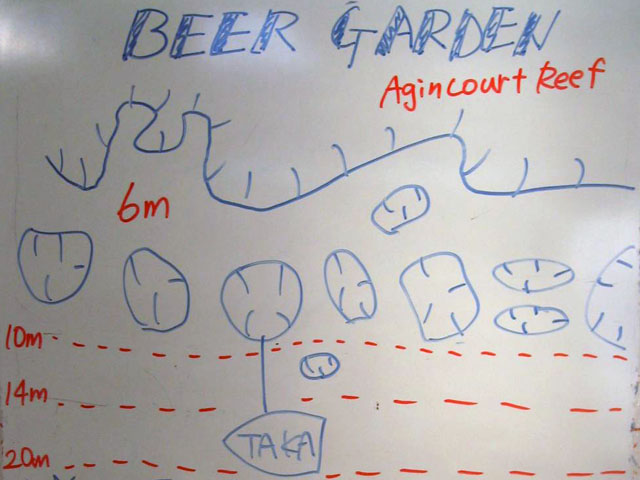 BEER GARDEN
Agincourt Reef
6m
10m
14m
TAKA
20m